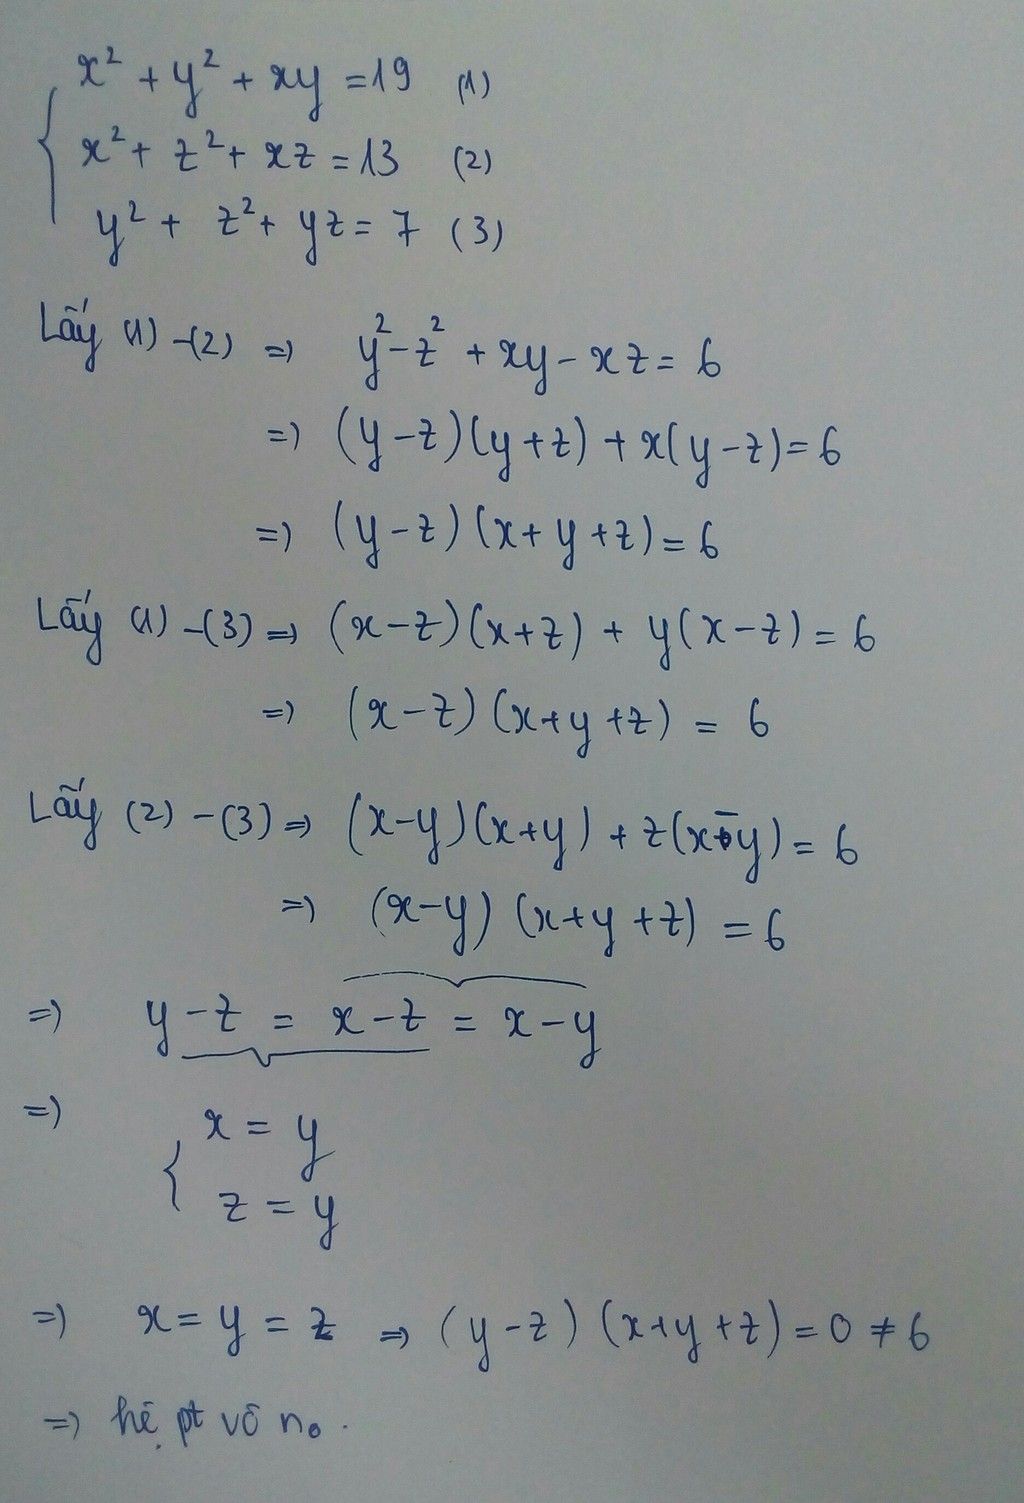 x² + y² + xy = 19 (1)
x² + z² + xz = 13 (2)
y² + z² + yz = 7 (3)
Lấy (1) - (2) => y² - z² + xy - xz = 6
=> (y - z)(y + z) + x(y - z) = 6
=> (y - z)(x + y + z) = 6
Lấy (1) - (3) => (x - z)(x + z) + y(x - z) = 6
=> (x - z)(x + y + z) = 6
Lấy (2) - (3) => (x - y)(x + y) + z(x - y) = 6
=> (x - y)(x + y + z) = 6
=> y - z = x - z = x - y
=> { x = y
z = y
=> x = y = z => (y - z)(x + y + z) = 0 ≠ 6
=> hệ pt vô no.